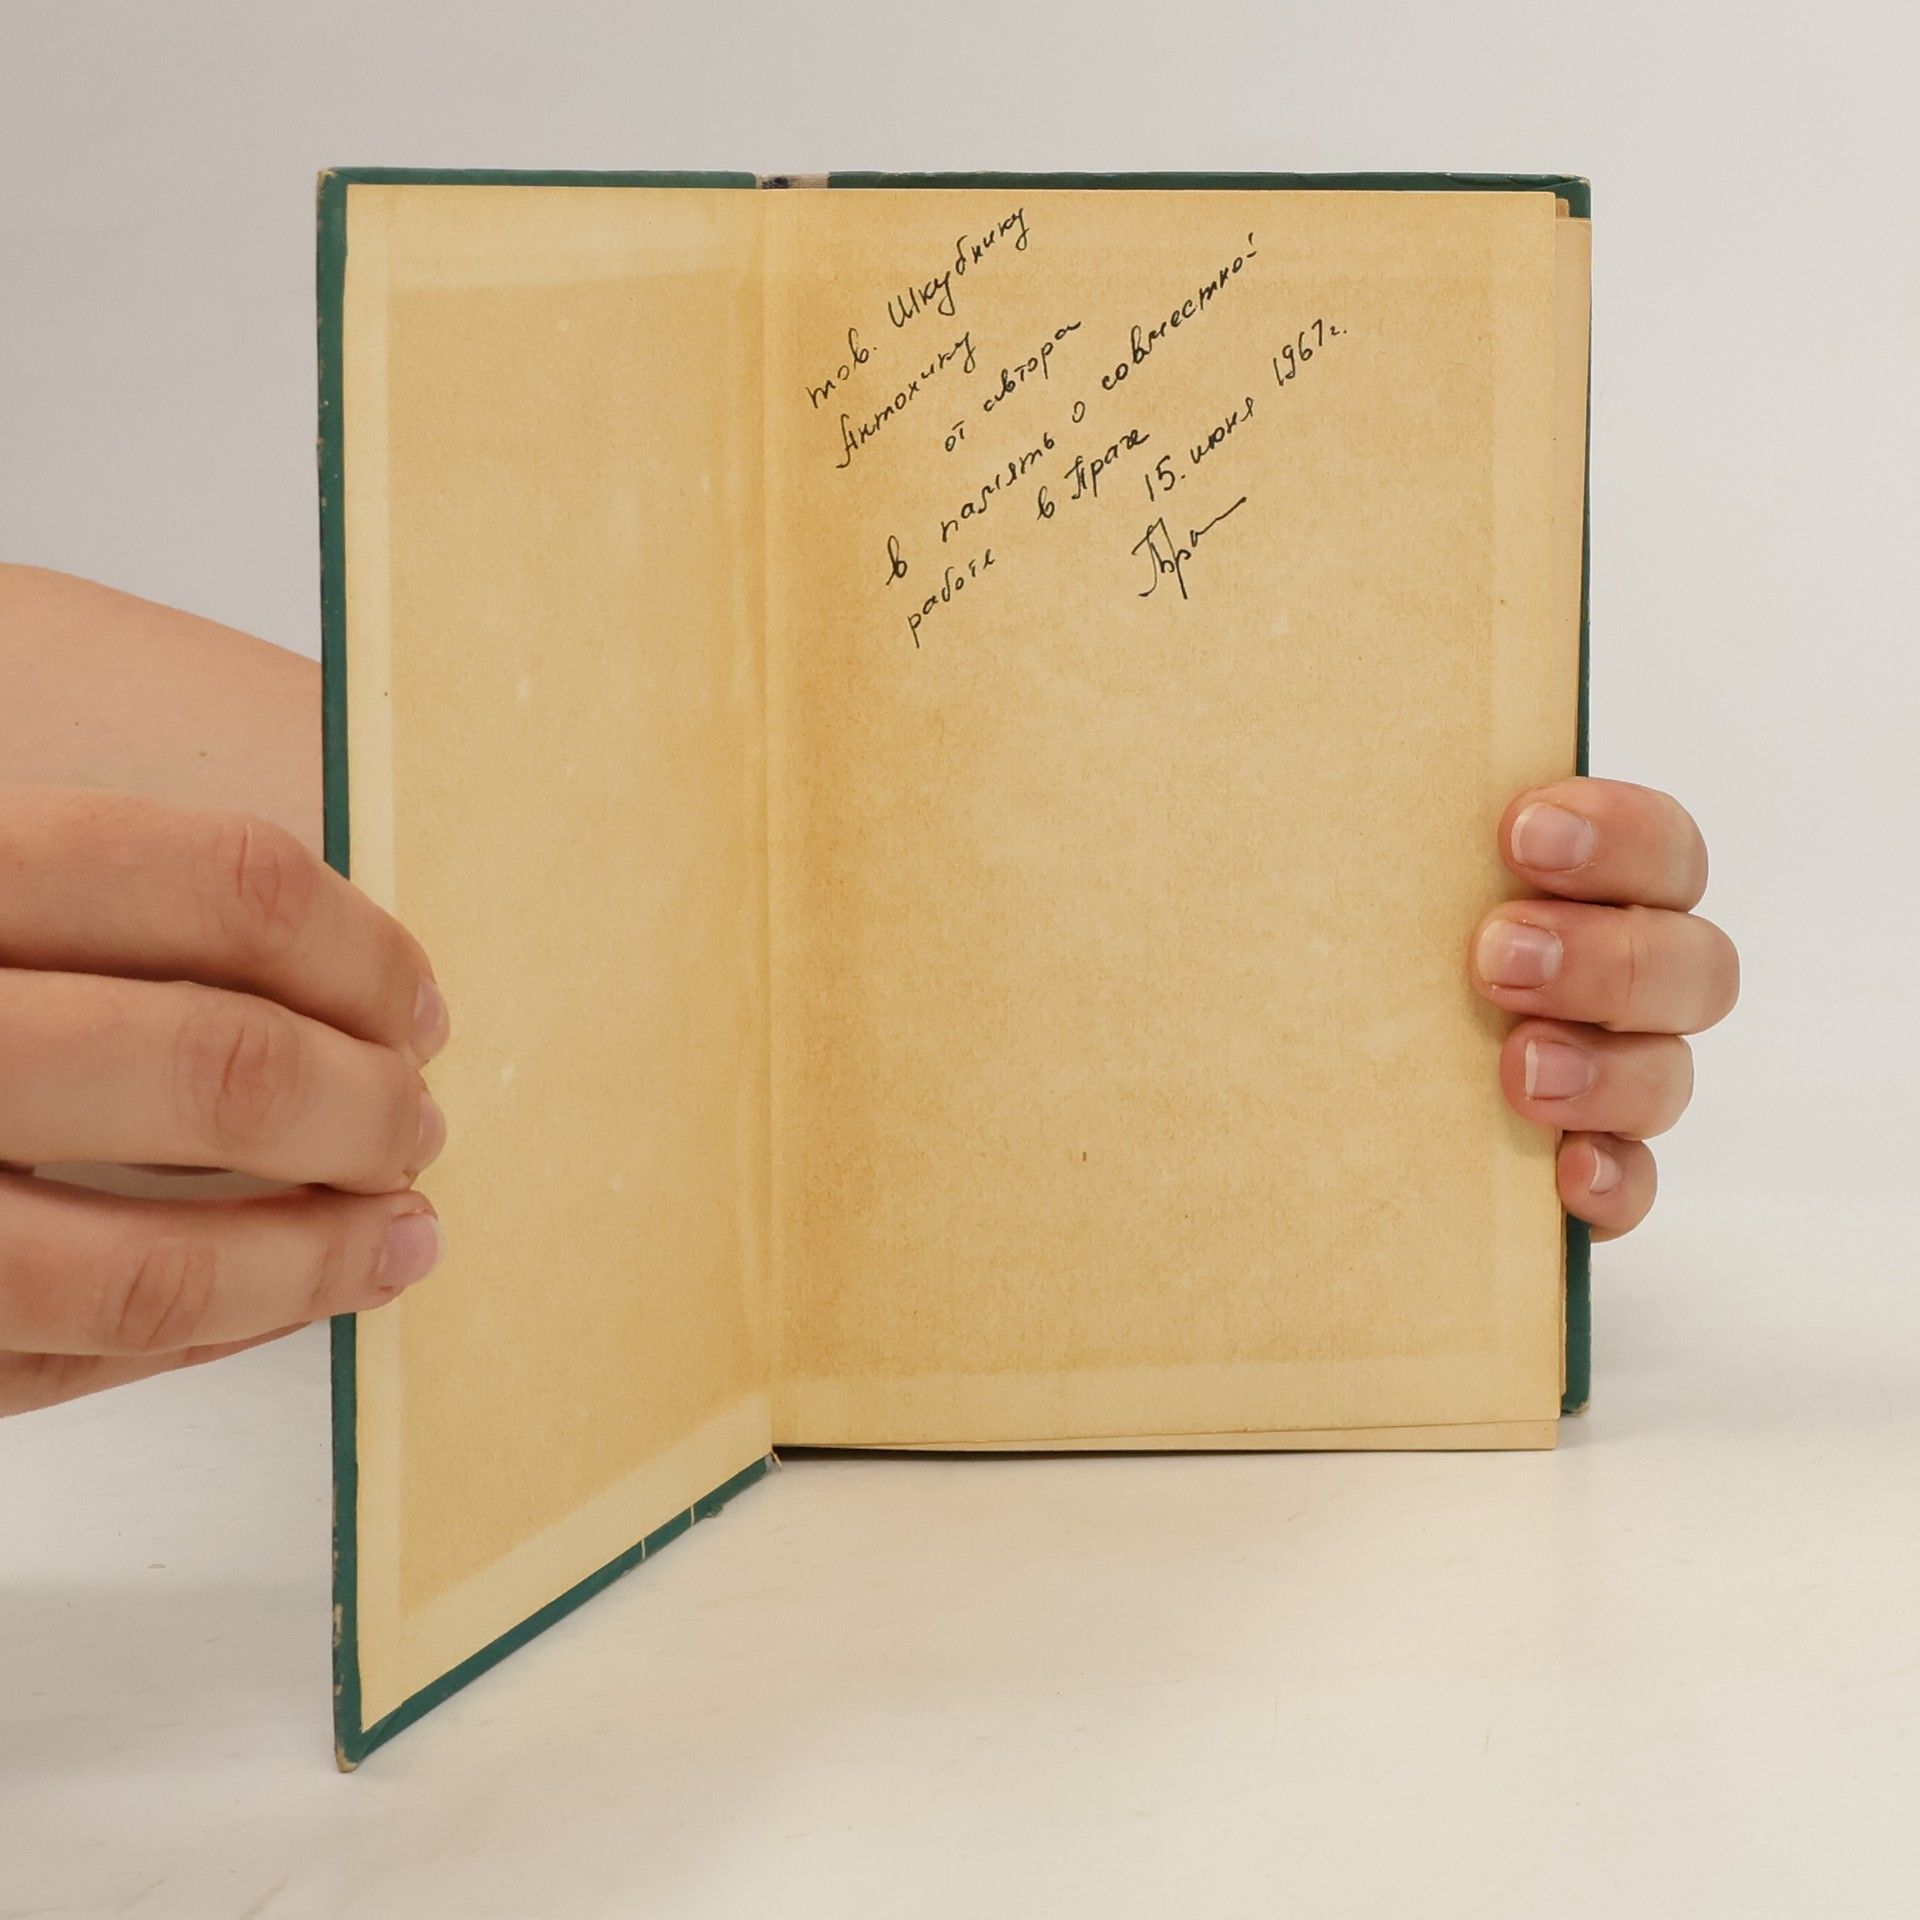 тов. Шкубнику
Антонину
от автора
в память о совместной
работе в Праге
15. июня 1967 г.